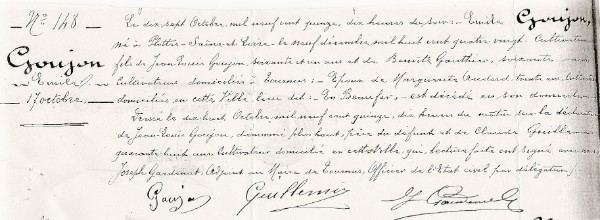 N° 148
Goujon
Emile
17 octobre
Le dix sept Octobre, mil neuf cent quinze, dix heures du soir : Emile Goujon
né à Saône et Loire le neuf décembre mil huit cent quatre vingt. Cultivateur
fils de Jean Louis Goujon, soixante et un ans et de Benoite Gauthier, soixante
cultivateurs domiciliés à Tournus ; Epoux de Marguerite trente ans,
domiciliés en cette Ville lieu dit : En Beaufer, est décédé en son domicile
Dressé le dix huit Octobre, mil neuf cent quinze, dix heures du matin sur la déclaration
de Jean Louis Goujon, dénommé plus haut, père du défunt et de Claude Guillemin
quarante huit ans cultivateur domicilié en cette Ville, qui, lecture faite ont signé avec nous
Joseph Adjoint au Maire de Tournus, Officier de l'Etat civil par délégation.
Goujon Guillemin